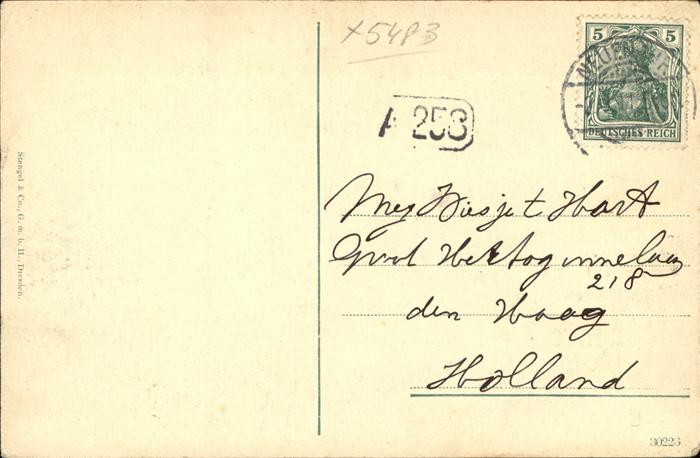 x5483
5 5
DEUTSCHES REICH
A 258
Stengel & Co., G. m. b. H., Dresden.
Mej Wiesje t Hart
Groot Hertoginnelaan
218
den Haag
Holland
30226